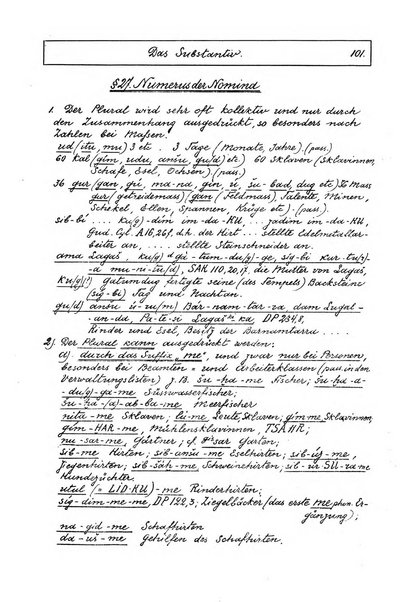 Das Substantiv. 101.
§ 27. Numerus der Nomina
1. Der Plural wird sehr oft kollektiv und nur durch
den Zusammenhang ausgedrückt, so besonders nach
Zahlen bei Maßen.
ud/(itu, mu) 3 etc. 3 Tage (Monate, Jahre). (pass.)
60 kal (gim, udu, anšu, gu/d) etc) 60 Sklaven (Sklavinnen,
Schafe, Esel, Ochsen). (pass.)
36 gur/(gan, gú, ma-na, gin, ù, šu-bad, dug etc) 36 Mass
gur/getreidemass)/gan (Feldmass), Talente, Minen,
Schekel, Ellen, Spannen, Krüge etc) - (pass).
sib-bi ku/g)-dim im-da-KU .. zadim im-da-KU,
Gud. Cyl. A 16, 26 f, d.h. der Hirt ... stellte Edelmetallar-
beiter an, .... stellte Steinschneider an.
ama Lagaš, ku/g)
DP 234, 8,
Rinder und Esel, Besitz der Barnamtarra ...
2) Der Plural kann ausgedrückt werden:
a) durch das Suffix „me", und zwar nur bei Personen,
besonders bei Beamten = und Arbeiterklassen (pass. in den
Verwaltungslisten) z.B. šu-ḫa-me Fischer; šu-ḫa-a-
-du/g)-ga-me Süsswasserfischer;
šu-ḫa-/d)-ab-ba-me Meerfischer
nitá-me Sklaven, Leute, Sklaven, gim-me Sklavinnen,
gim-ḪAR-me, Mühlensklavinnen, TSA
nu-sar-me, Gärtner; cf. Garten;
sib-me Hirten; sib-anšu-me Eselhirten;
Ziegenhirten; sib-šáḫ-me Schweinehirten; sib-úr
Hundezüchter.
utul (= LID-KU) -me Rinderhirten;
sig-dim-me-me, DP 122, 3; Ziegelbäcker (das erste me phon. Er-
gänzung);
na-gid-me Schafhirten
da-ús-me Gehilfen des Schafhirten.